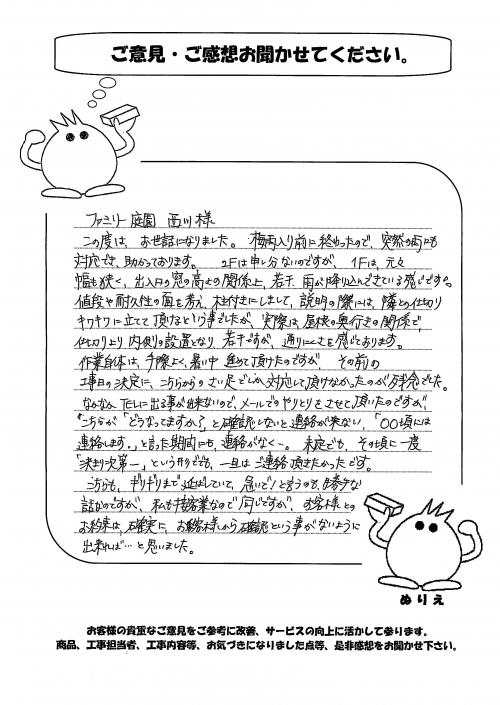 ご意見・ご感想お聞かせてください。
ファミリー庭園 西川様
この度は、お世話になりました。梅雨入り前に終わったので、突然の雨にも
対応でき、助かっております。2Fは申し分ないのですが、1Fは、元々
幅も狭く、出入口の窓の高さの関係上、若干、雨が降り込んできている感じです。
値段や耐久性の面を考え、柱付きにしまして、説明の際には、隣との仕切り
キワキワに立てて頂けるという事でしたが、実際は、屋根の奥行きの関係で、
仕切りより内側の設置となり、若干ですが、通りにくさを感じております。
作業自体は、手際よく、暑い中進めて頂けたのですが、その前の
工事日の決定に、こちらからのさい足でしか対応して頂けなかったのが残念でした。
なかなかTELに出る事が出来ないので、メールでのやりとりをさせて頂いたのですが、
"こちらが「どうなってますか?」と確認しないと連絡が来ない、「〇〇頃には
連絡します。」と言った期間にも、連絡がなく〜。未定でも、その頃に一度
「決まり次第―」という形でも、一旦はご連絡頂きたかったです。
こちらも、ギリギリまで延ばしていて、急いで!と言うのも、勝手な
話なのですが、私も接客業なので同じですが、お客様との
お約束は、確実に、お客様から確認という事がないように
出来れば…と思いました。
ぬりえ
お客様の貴重なご意見をご参考に改善、サービスの向上に活かして参ります。
商品、工事担当者、工事内容等、お気づきになりました点等、是非感想をお聞かせ下さい。